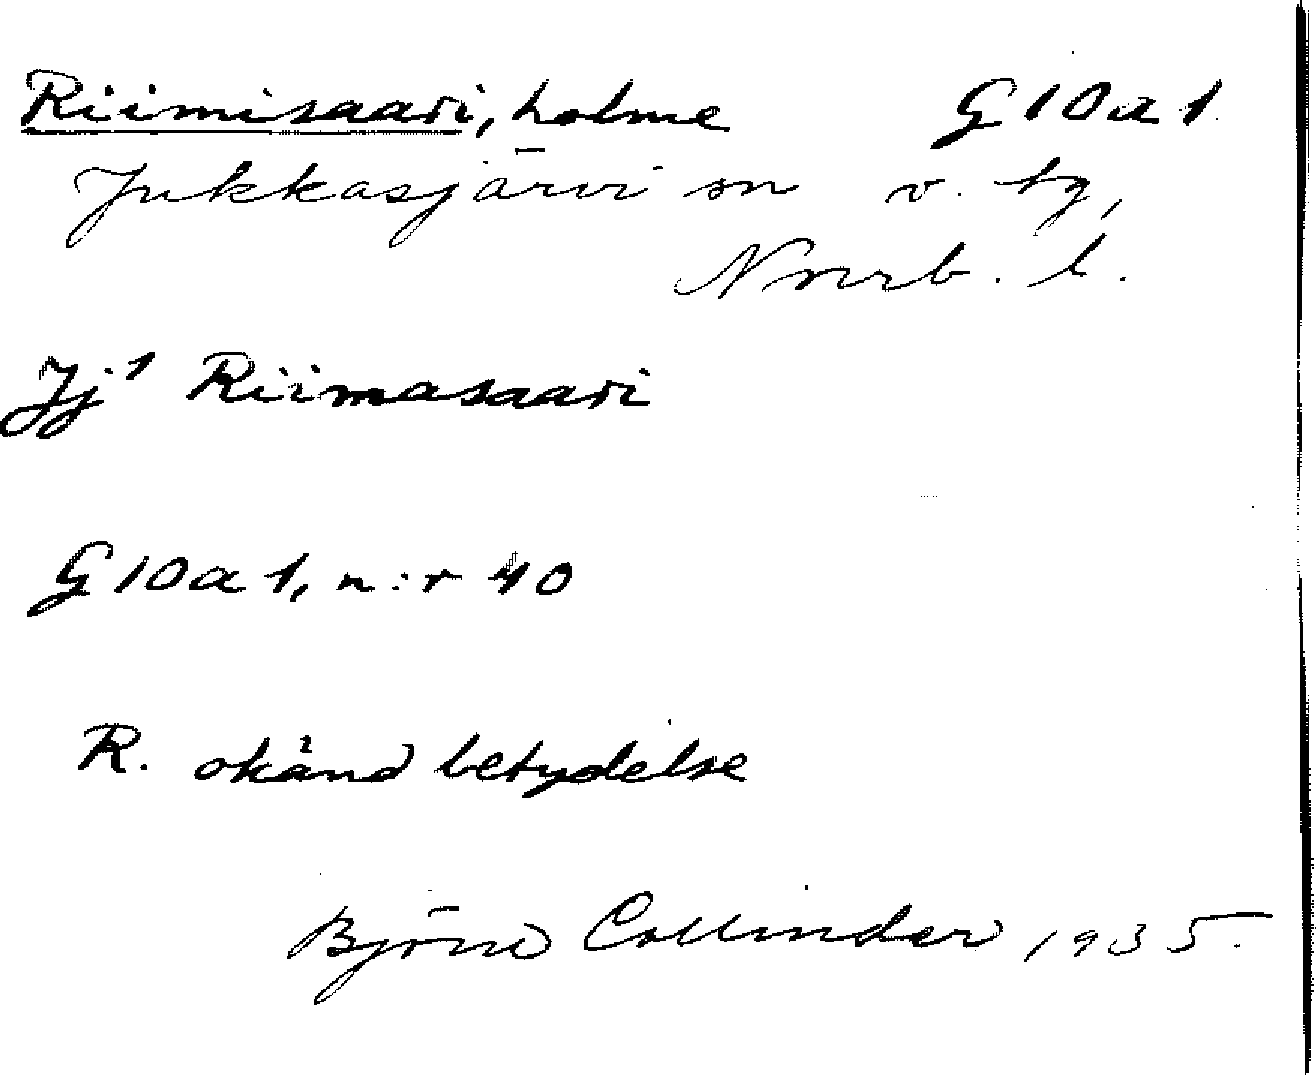 Riimisaari, holme G 10 a 1
Jukkasjärvi sn v. tg,
Norrb. l.
Jj¹ Riimasaari
G 10 a 1, n:r 40
R. okänd betydelse
Björn Collinder 1935.